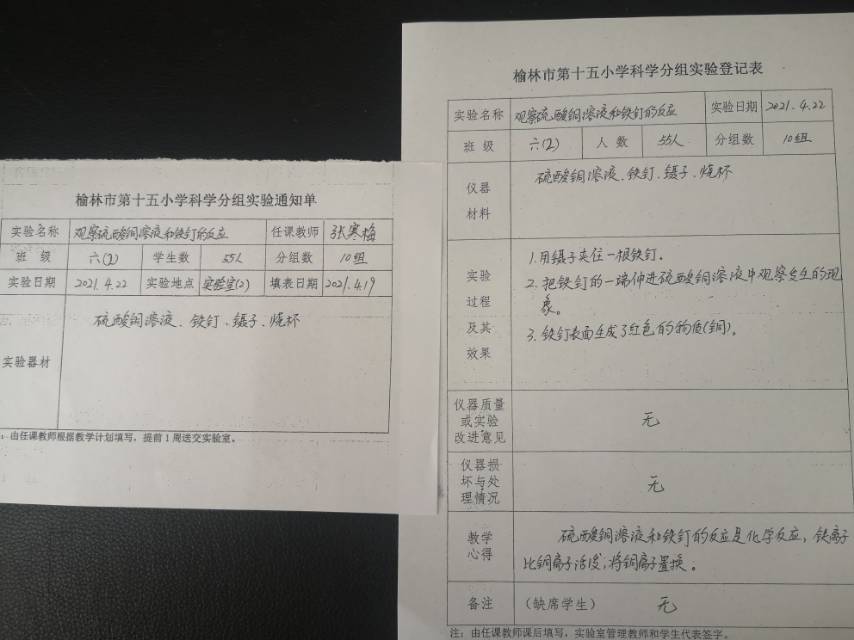 榆林市第十五小学科学分组实验通知单
实验名称 观察硫酸铜溶液和铁钉的反应 任课教师 张寒梅
班 级 六(2) 学生数 55人 分组数 10组
实验日期 2021.4.22 实验地点 实验室(2) 填表日期 2021.4.19
实验器材 硫酸铜溶液、铁钉、镊子、烧杯
:由任课教师根据教学计划填写,提前1周送交实验室。
榆林市第十五小学科学分组实验登记表
实验名称 观察硫酸铜溶液和铁钉的反应 实验日期 2021.4.22
班 级 六(2) 人 数 55人 分组数 10组
仪器
材料
硫酸铜溶液、铁钉、镊子、烧杯
实验
过程
及其
效果
1.用镊子夹住一根铁钉。
2.把铁钉的一端伸进硫酸铜溶液中观察发生的现
象。
3.铁钉表面生成了红色的物质(铜)。
仪器质量
或实验
改进意见
无
仪器损
坏与处
理情况
无
教学
心得
硫酸铜溶液和铁钉的反应是化学反应,铁离子
比铜离子活泼,将铜离子置换。
备注 (缺席学生) 无
注:由任课教师课后填写,实验室管理教师和学生代表签字。